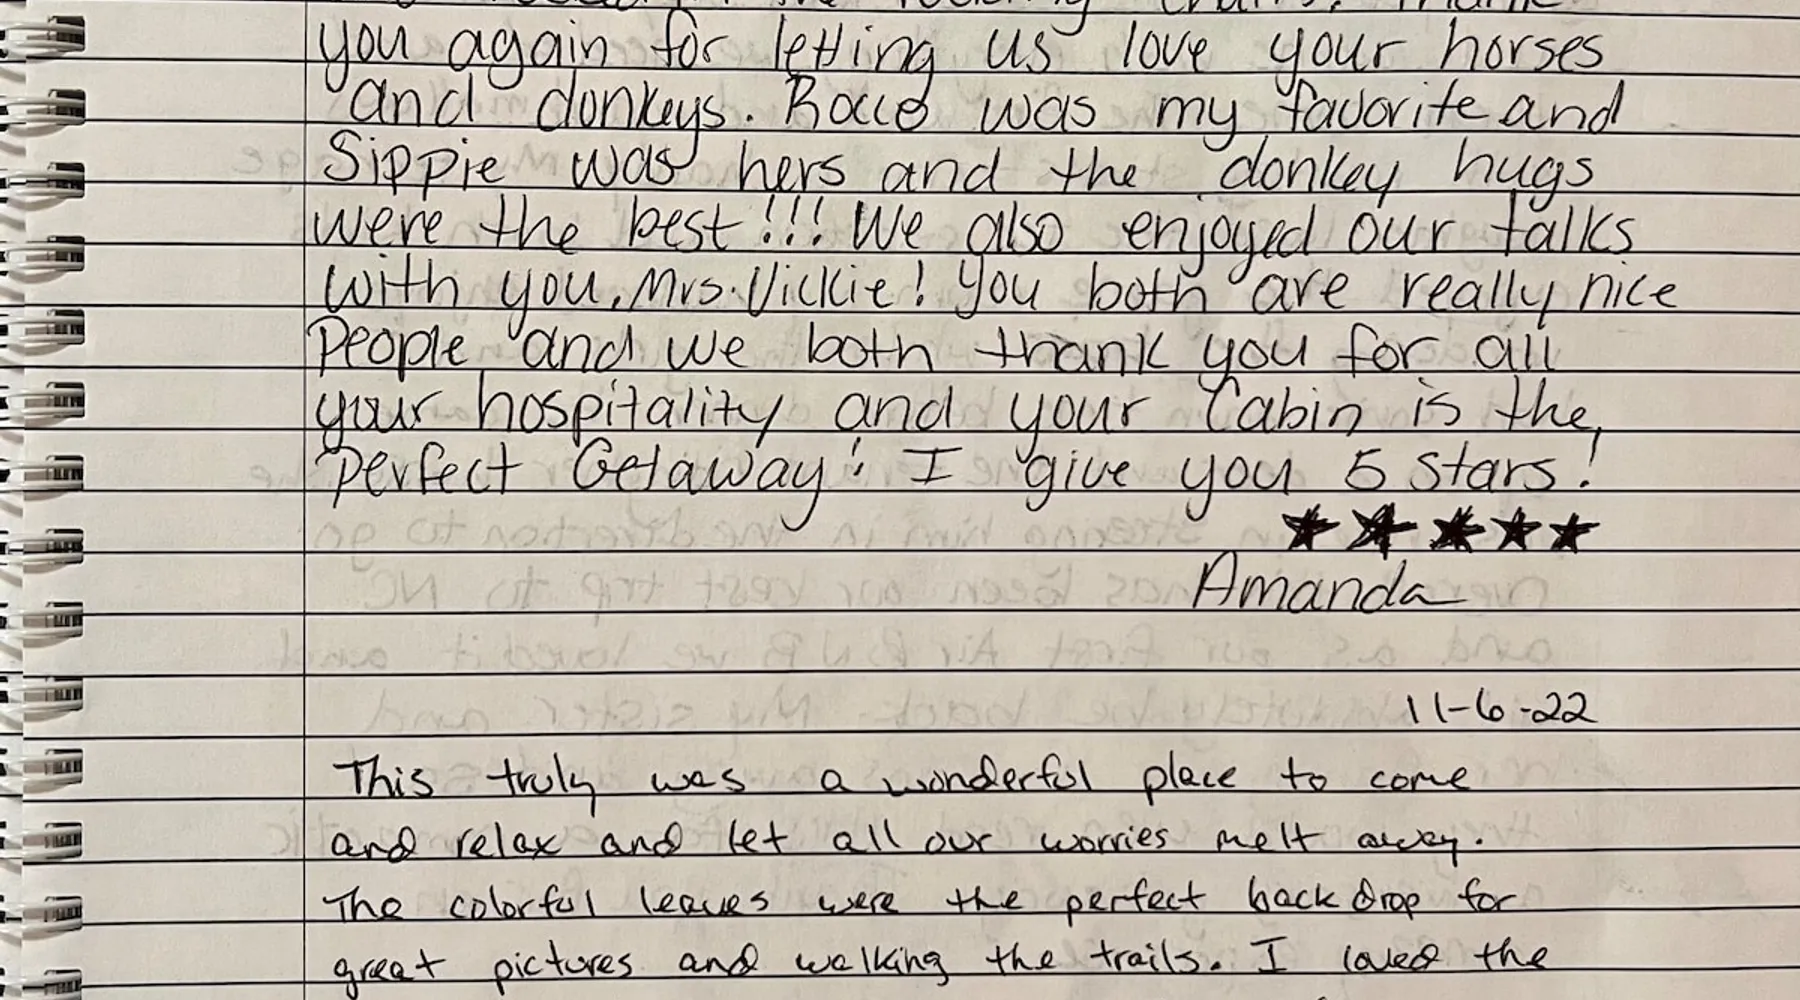 the rocking chairs. Thank
you again for letting us love your horses
and donkeys. Rocco was my favorite and
Sippie was hers and the donkey hugs
were the best!!! We also enjoyed our talks
with you, Mrs. Vickie! You both are really nice
People and we both thank you for all
your hospitality and your Cabin is the,
perfect Getaway! I give you 5 stars!
★★★★★
Amanda
11-6-22
This truly was a wonderful place to come
and relax and let all our worries melt away.
The colorful leaves were the perfect back drop for
great pictures and walking the trails. I loved the